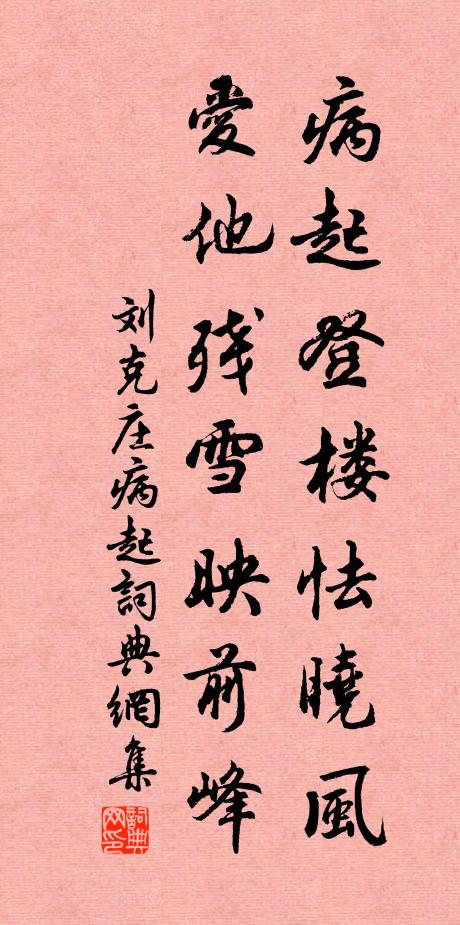 病起登楼怯曉風
愛他残雪映前峰
刘克庄病起詞典網集
詞典网印